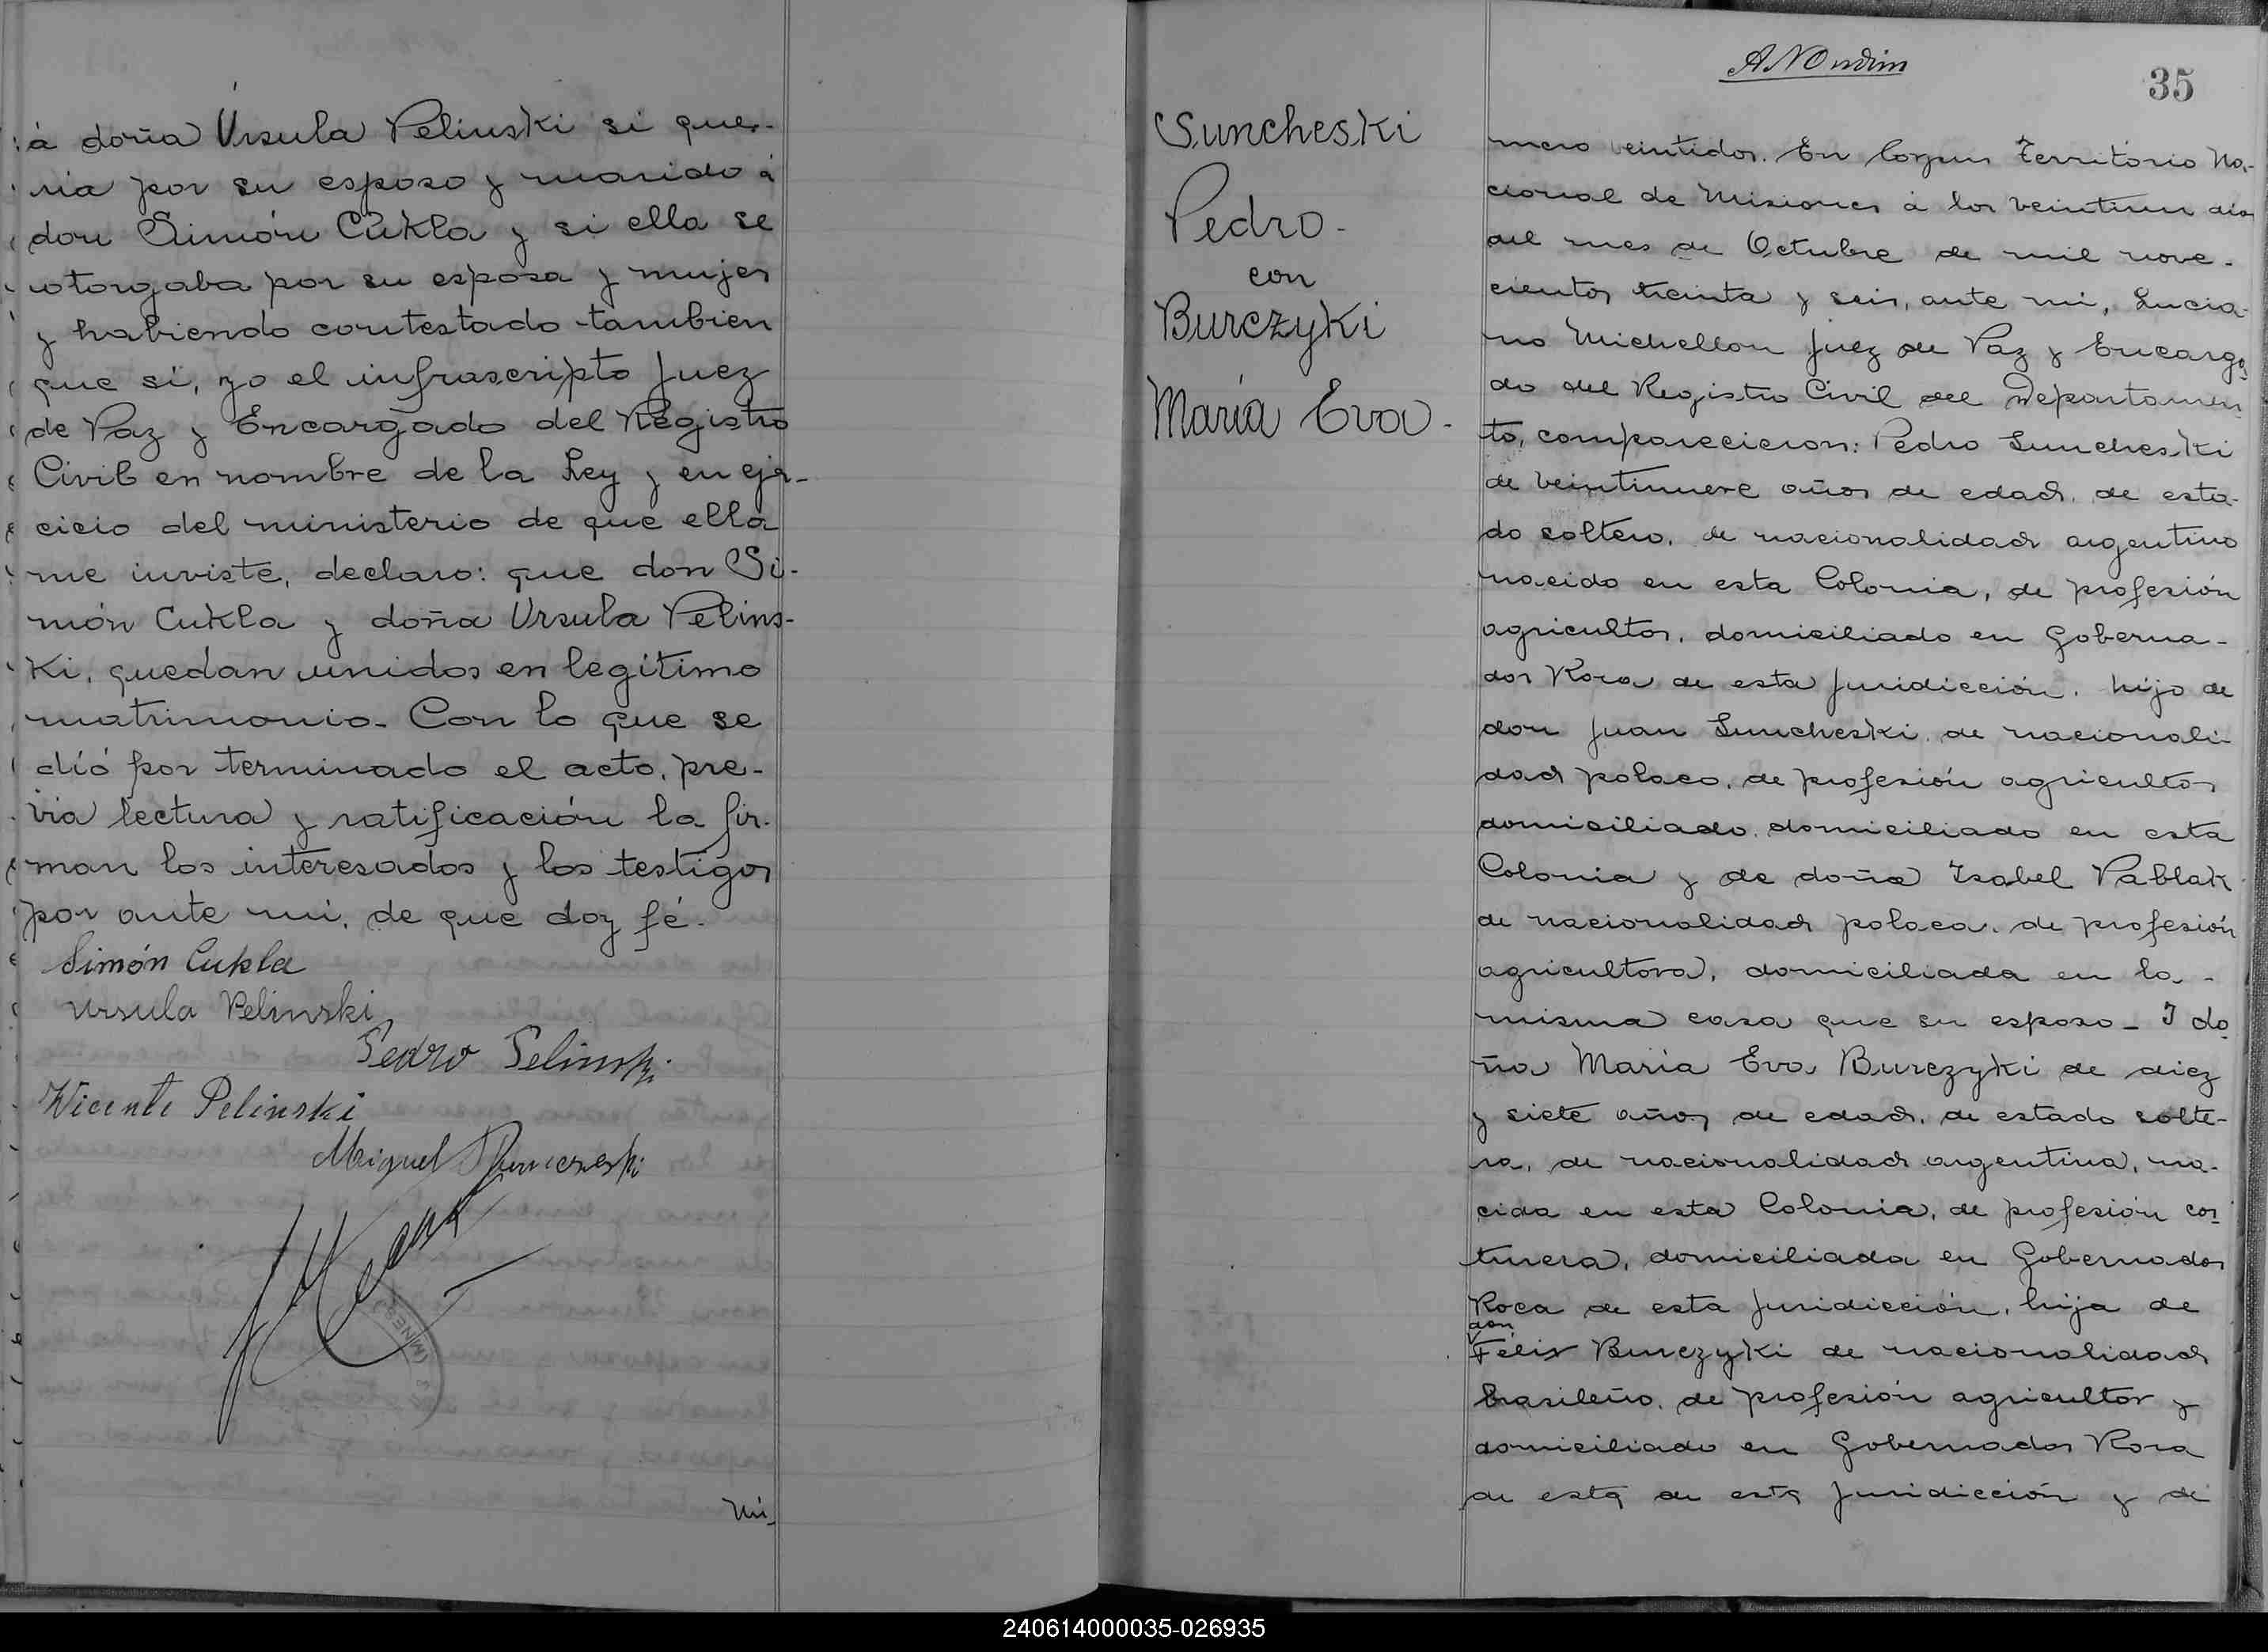 á doña Úrsula Pelinski si que-
ria por su esposo y marido á
don Simón Cukla y si ella se
otorgaba por su esposa y mujer
y habiendo contestado tambien
que si, yo el infrascripto Juez
de Paz y Encargado del Registro
Civil en nombre de la Ley y en ejer-
cicio del ministerio de que ella
me inviste, declaro: que don Si-
món Cukla y doña Ursula Pelins-
ki, quedan unidos en legítimo
matrimonio. Con lo que se
dió por terminado el acto, pre-
via lectura y ratificación la fir-
man los interesados y los testigos
por ante mi, de que doy fé.
Simón Cukla
Ursula Pelinski
Pedro Pelinski
Vicente Pelinski
Miguel
Nú-
Suncheski
Pedro-
con
Burczyki
María Eva-
35
mero veintidos. En Corpus Território Na-
cional de Misiones á los veintiun dias
del mes de Octubre de mil nove-
cientos treinta y seis, ante mi, Lucia-
no Michellon Juez de Paz y Encarga-
do del Registro Civil del Departamen-
to, comparecieron: Pedro Suncheski
de veintinueve años de edad, de esta-
do soltero, de nacionalidad argentino
nacido en esta Colonia, de profesión
agricultor, domiciliado en Goberna-
dor Roca de esta Juridicción, hijo de
don Juan Suncheski de nacionali-
dad polaco, de profesión agricultor
domiciliado domiciliado en esta
Colonia y de doña Isabel Pablak
de nacionalidad polaca, de profesión
agricultora, domiciliada en la-
misma casa que su esposo- I do-
ña Maria Eva Burczyki de diez
y siete años de edad, de estado solte-
ra, de nacionalidad argentina, na-
cida en esta Colonia, de profesión cos-
turera, domiciliada en Gobernador
Roca de esta Juridicción, hija de
don
Félix Burczyki de nacionalidad
brasileño, de profesión agricultor y
domiciliado en Gobernador Roca
de esta de esta Juridicción y de
240614000035-026935